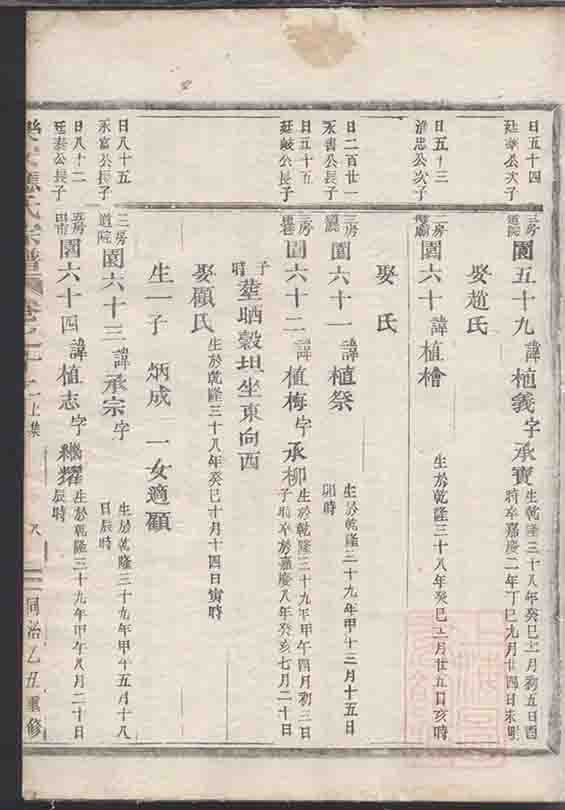 日五十四
廷華公次子
三房
園五十九 諱植義字承寶 生乾隆三十八年癸巳十一月初五日酉
時卒嘉慶二年丁巳九月廿四日未時
娶趙氏
日五十三
公次子
園六十 諱植檜 生於乾隆三十八年癸巳十二月廿五日亥時
娶 氏
日二百廿一
永書公長子
三房
園六十一 諱植祭 生於乾隆三十九年甲午三月十五日
卯時
日五十五
廷岐公長子
三房
園六十二 諱植梅字承柳 生於乾隆三十九年甲午四月初三日
子時卒於嘉慶八年癸亥七月二十日
子時 塟晒穀坦坐東向西
娶顧氏 生於乾隆三十八年癸巳十月十四日寅時
生一子 炳成 一女適顧
日八十五
永富公長子
二房
道院
園六十三 諱承宗字 生於乾隆三十九年甲午五月十八
日辰時
日八十二
廷泰公長子
園六十四 諱植志字繼耀 生於乾隆三十九年甲午八月二十日
辰時
氏宗譜 卷之 上集
同治乙丑重修